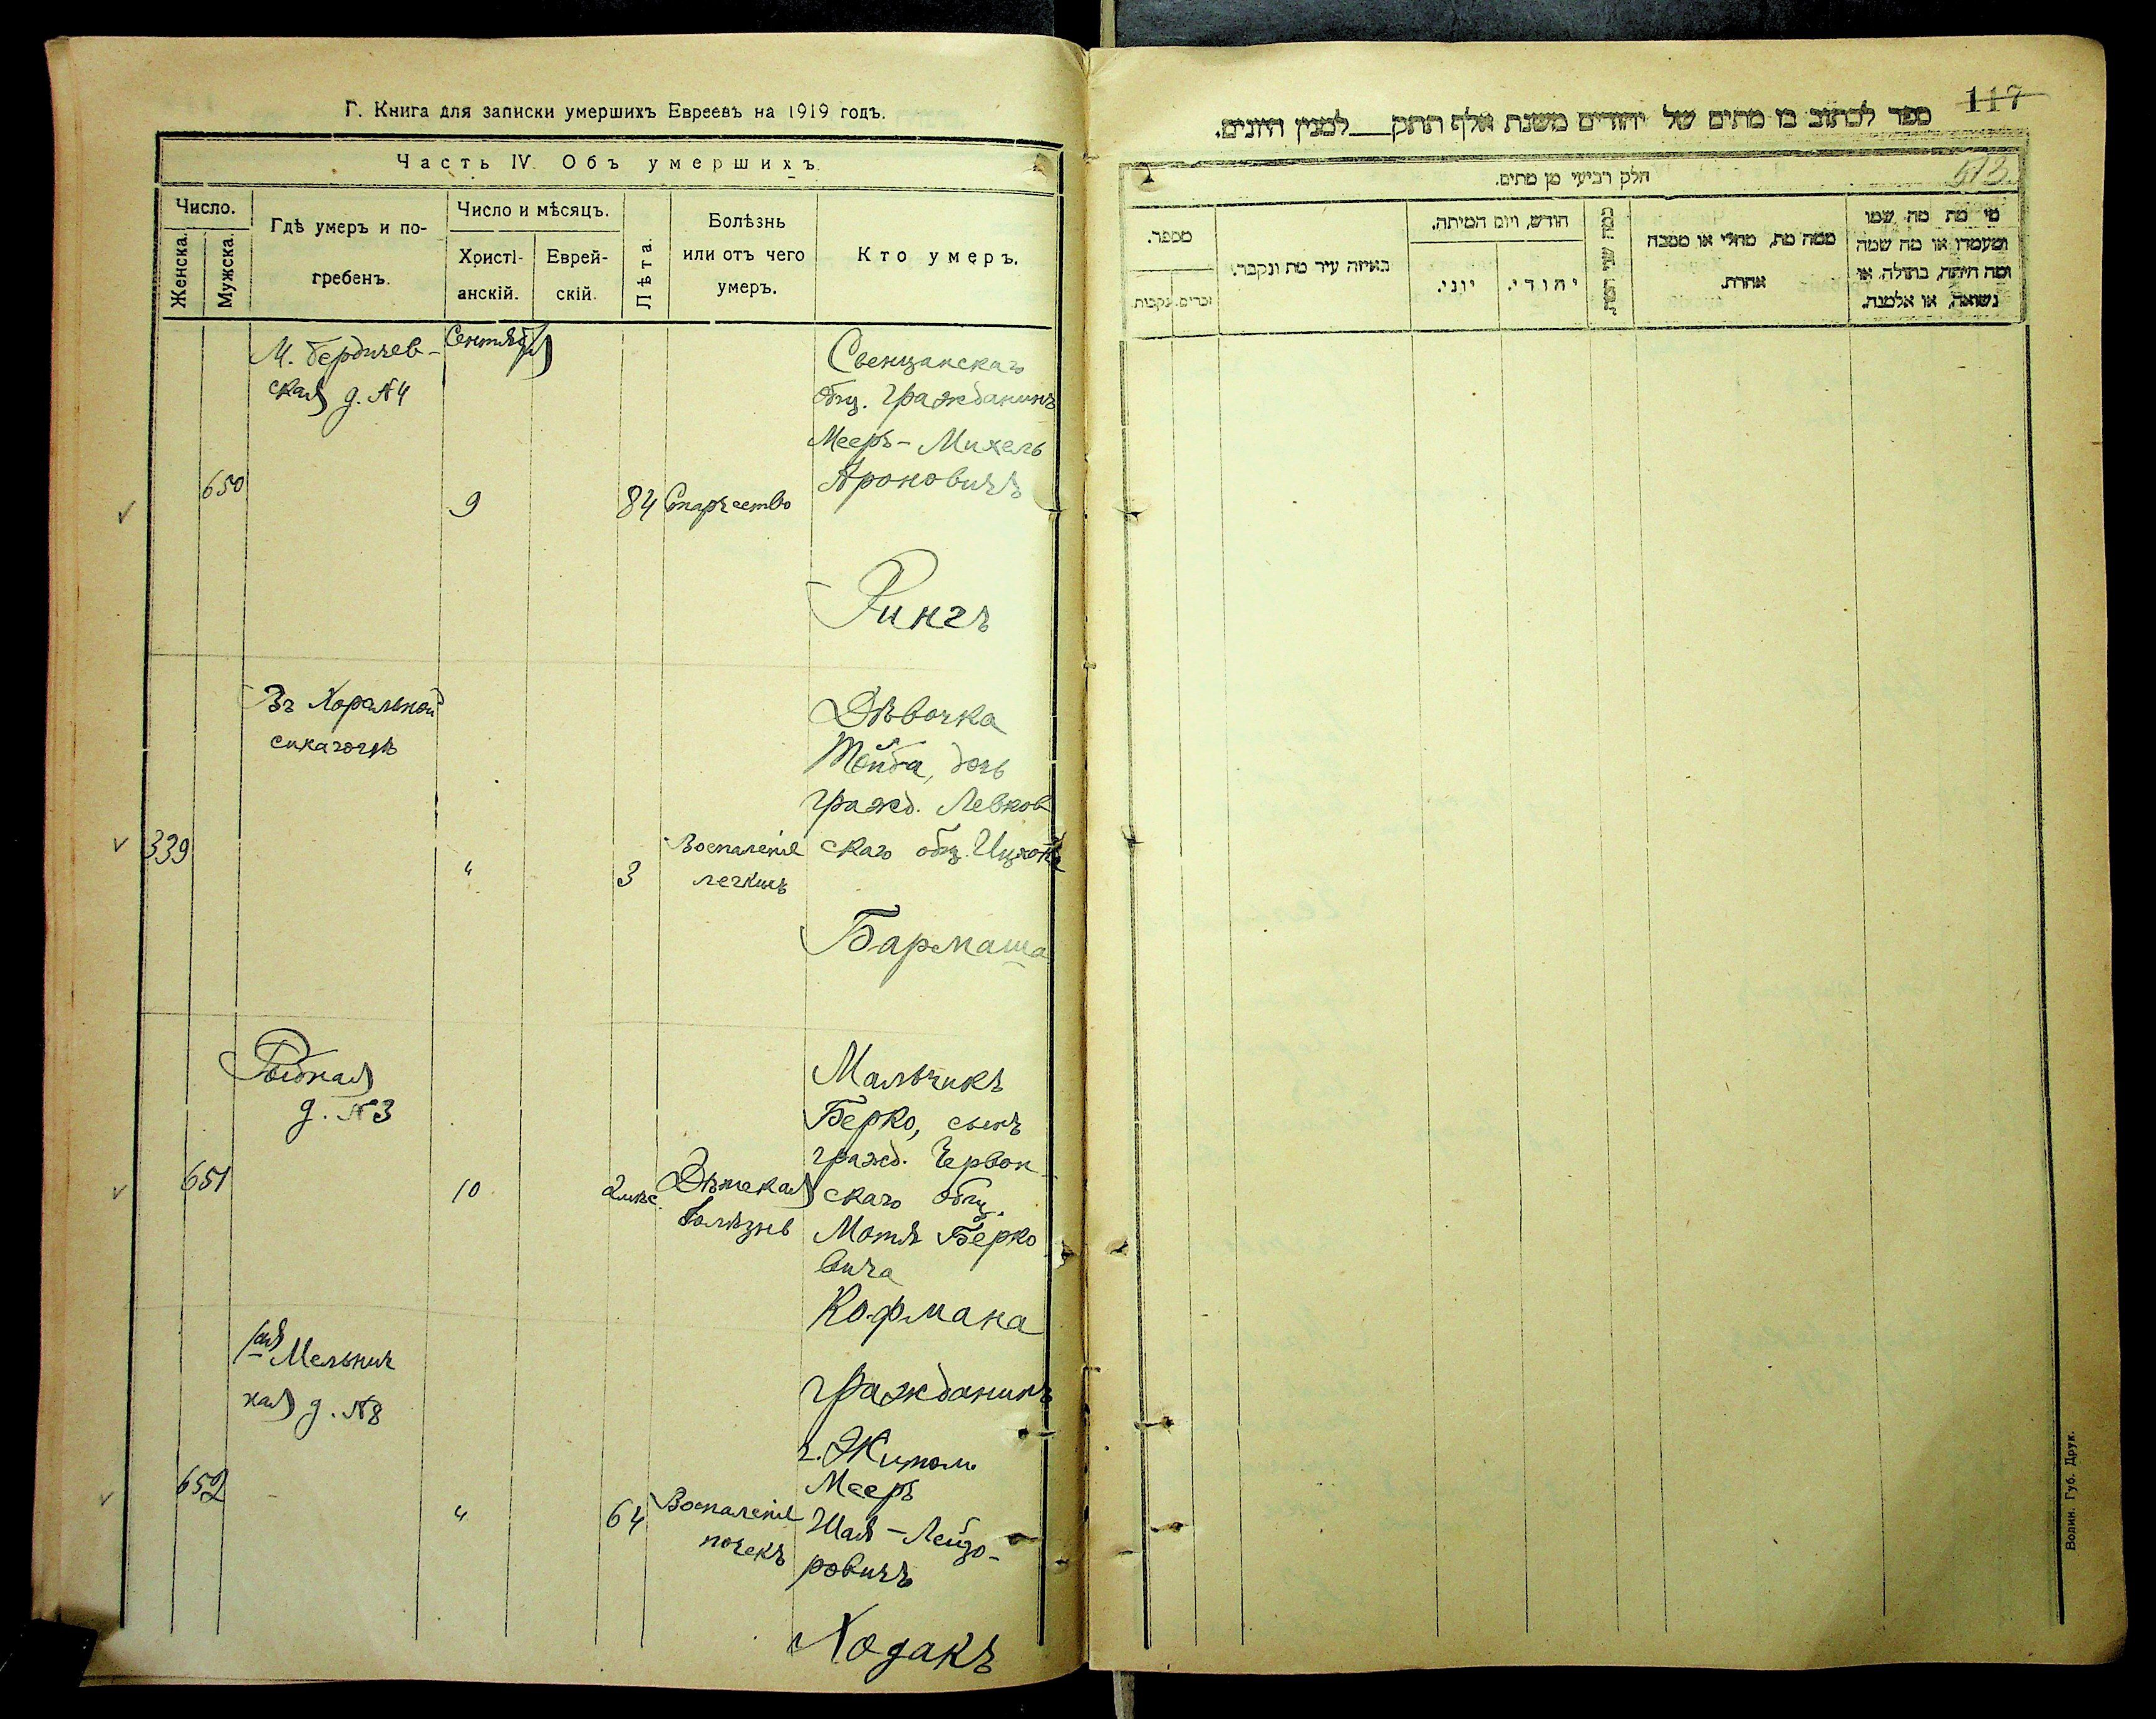 Г. Книга для записки умершихъ Евреевъ на 1919 годъ.
Часть IV. Объ умершихъ.
Число.
Женска.
Мужска.
Гдѣ умеръ и по-
гребенъ.
Число и мѣсяцъ.
Христі-
анскій.
Еврей-
скій.
Лѣта.
Болѣзнь
или отъ чего
умеръ.
Кто умеръ.
650
М. Бердичев-
ская д. №4
Сентября
9
84
Старчество
Свенцанскаго
общ. гражданинъ
Мееръ-Михель
Ароновичъ
Рингъ
339
Въ Хоральной
синагогѣ
"
3
Воспаленіе
легкихъ
Дѣвочка
Тойба, дочь
гражд. Левков
скаго общ. Ицхока
Бармаша
651
Рыбная
д. №3
10
2 мѣс.
Дѣтская
болѣзнь
Мальчикъ
Берко, сынъ
гражд. Червон
скаго общ.
Мотя Берко
вича
Кофмана
652
1ая Мельнич
ная д. №8
"
64
Воспаленіе
почекъ
гражданинъ
г. Житом.
Мееръ
Шая-Лейзо-
ровичъ
Ходакъ
117
ספר לכתוב בו מתים של יהודים משנת אלף תתק___למנין היונים.
513.
חלק רביעי מן מתים.
מספר.
זכרים.
נקבות.
באיזה עיר מת ונקבר.
חודש, ויום המיתה.
יוני.
יהודי.
ממה מת, מחלי או מסבה
אחרת.
מי מת מה שמו
ומעמדו או מה שמה
ומה היתה, בתולה, או
נשואה, או אלמנה.
Волин. Губ. Друк.